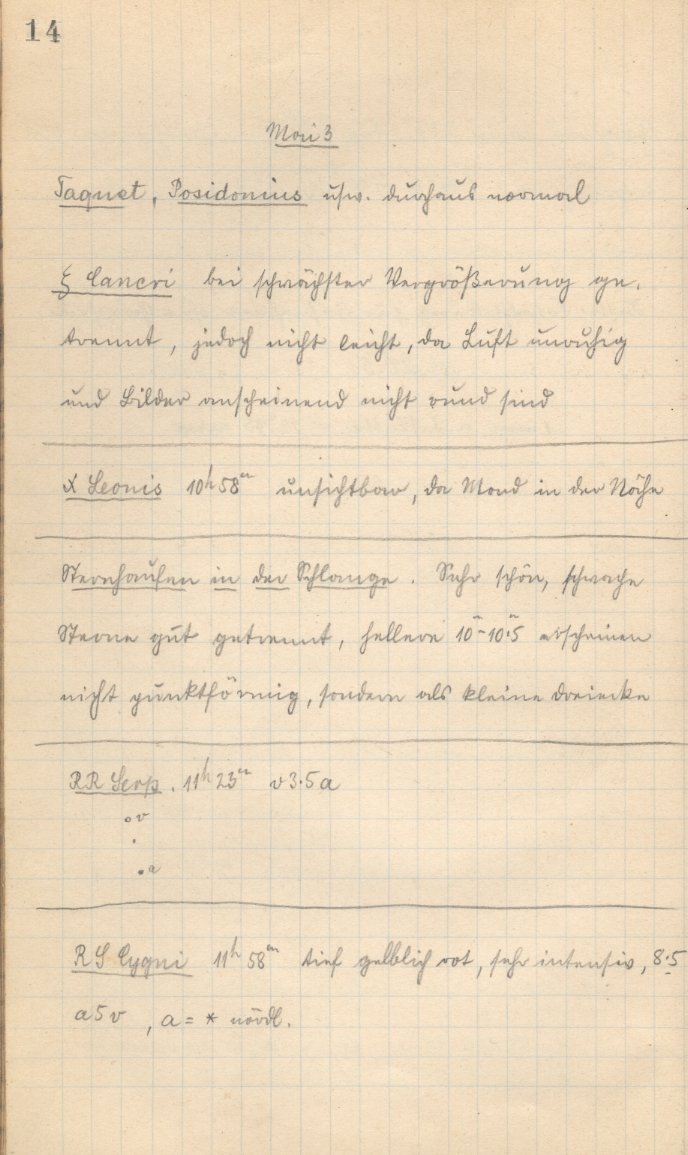 14
Mai 3
Taquet, Posidonius usw. durchaus normal
ξ Cancri bei schwächster Vergrößerung ge-
trennt, jedoch nicht leicht, da Luft unruhig
und Bilder anscheinend nicht rund sind
X Leonis 10h 58m unsichtbar, da Mond in der Nähe
Sternhaufen in der Schlange. Sehr schön, schwache
Sterne gut getrennt, hellere 10m-10m.5 erscheinen
nicht punktförmig, sondern als kleine Dreiecke
RR Serp. 11h 23m v3.5a
v
a
RS Cygni 11h 58m tief gelblich rot, sehr intensiv, 8.5
a5v, a = * nördl.